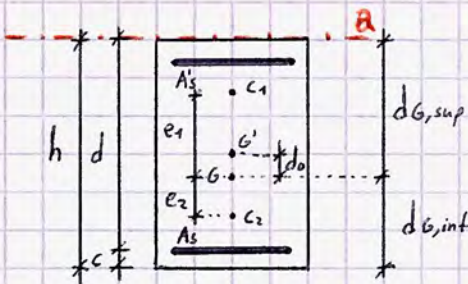 a
A's
C1
dG,sup
e1
h
d
G'
d0
G
e2
C2
dG,inf
As
c